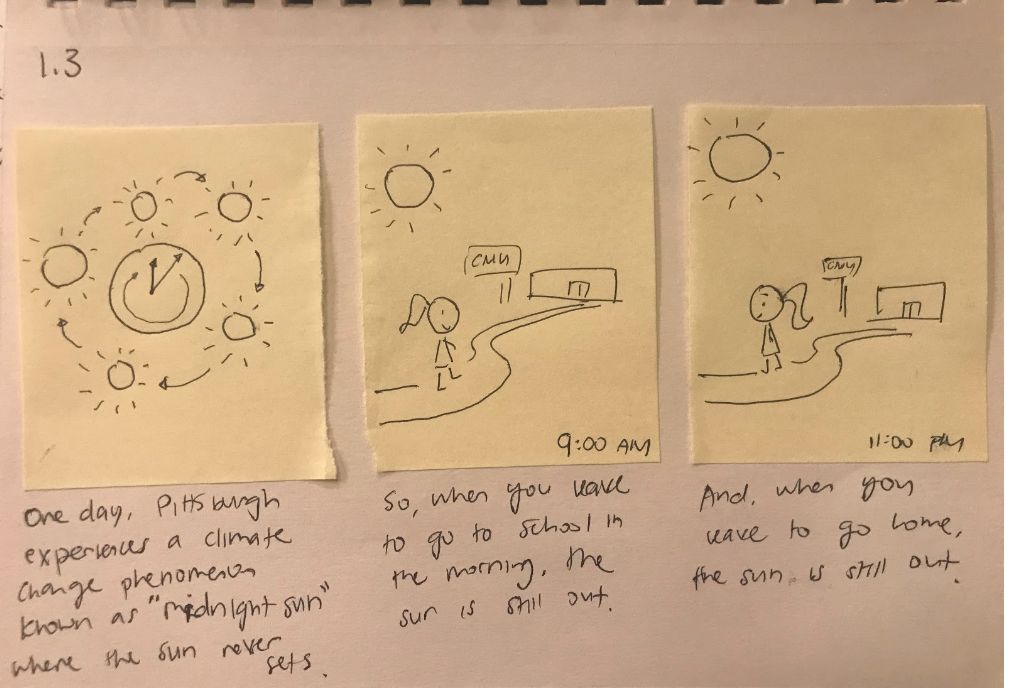 1.3
One day, Pittsburgh
experiences a climate
change phenomenon
known as "midnight sun"
where the sun never
sets.
CMU
9:00 AM
So, when you leave
to go to school in
the morning, the
sun is still out.
CMU
11:00 PM
And, when you
leave to go home,
the sun is still out.